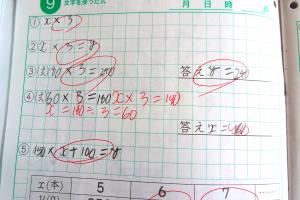 9 文字を使った式
月 日 時
① x × 3
② x × 3 = y
③ (式) 90 × 3 = 270
答え y = 270
④ (式) 60 × 3 = 180 x × 3 = 180
x = 180 ÷ 3 = 60
答え x = 60
⑤ 150 × x + 100 = y
x(本) 5 6 7